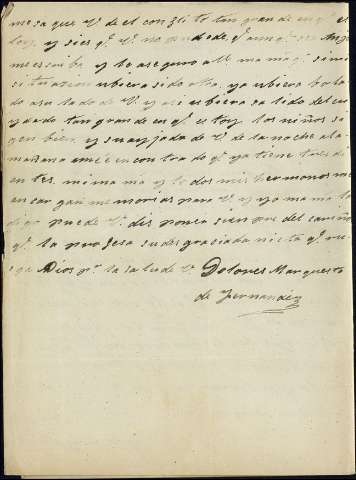 me sa que V. de el conzelito tan grande en q.e el
toy, y si es q.e V. no puede de
me escribe y lo aseguro all mamá si mi
situacion ubiera sido otra, ya ubiera bola
do asu lado de V. y asi ubiera salido del cui
ydado tan grande en q.e estoy los niños si
gen bien, y su ayjada de V. de la noche ala
mañana me e encontrado q.e ya tiene tres di
entes, mi mamá y todos mis hermonos me
encargan memorias para V. y yo mamá la
digo puede V. disponer sienpre del cariño
q.e la profesa su desgraciada nieta q.e rue
ga a Dios p.r la salud de V. Dolores Marquesto
de Fernandez